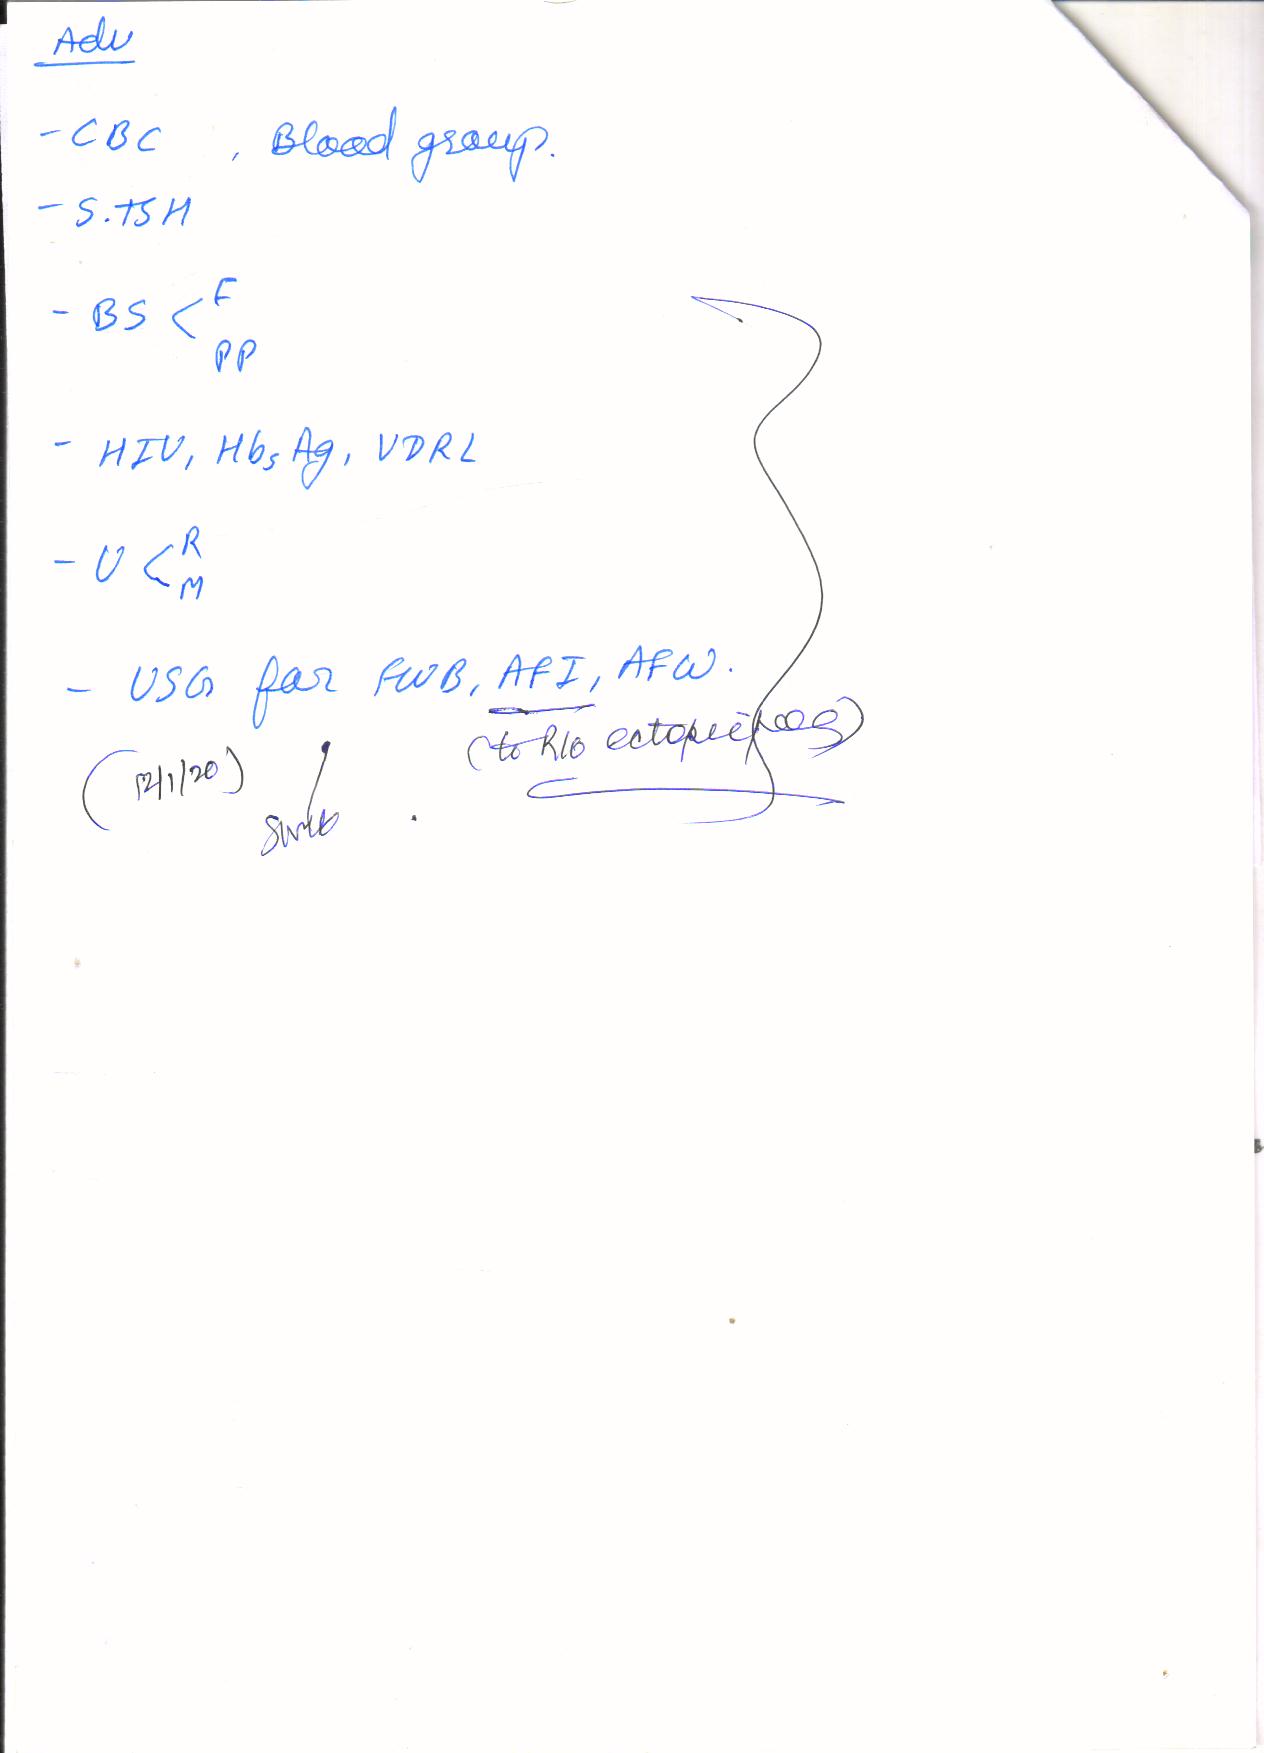 Adv
- CBC , Blood group.
- S.TSH
- BS < F
PP
- HIV, HbsAg, VDRL
- U < R
M
- USG for FWB, AFI, AFW.
(to R/o ectopic preg)
(12/1/20)